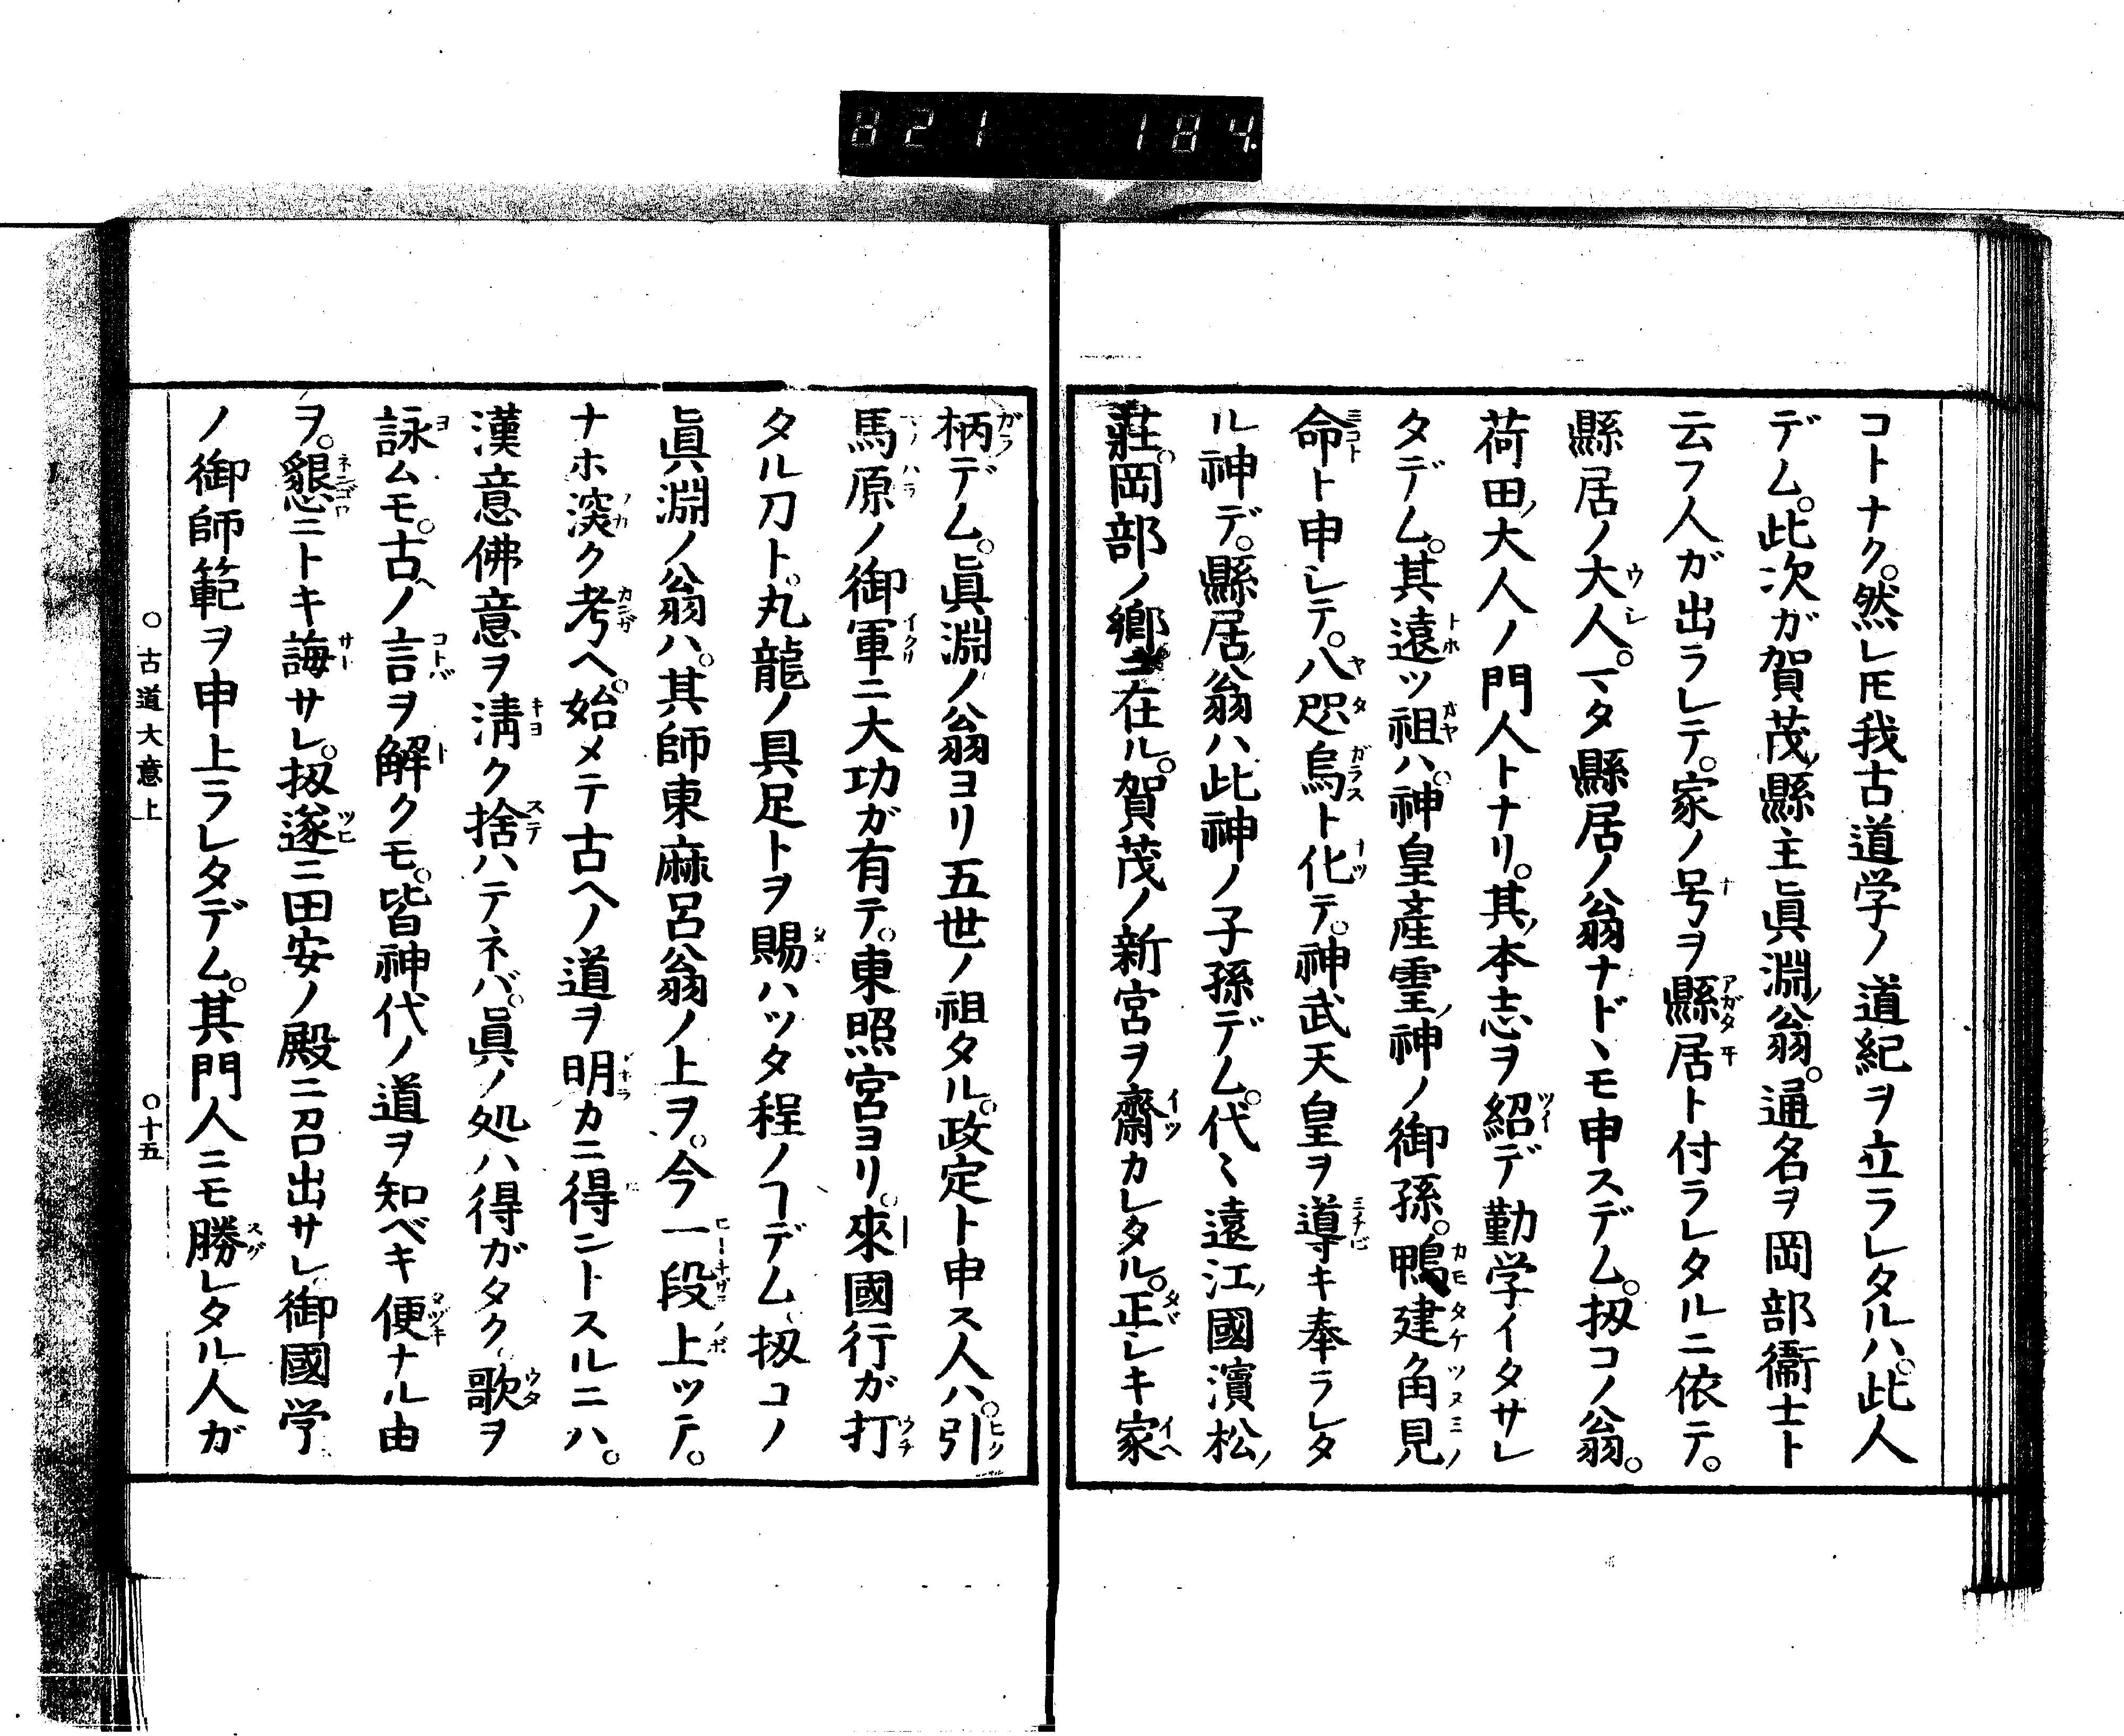 821 184.
コトナク。然レ𪜈我古道学ノ道紀ヲ立ラレタルハ。此人
デム。此次ガ賀茂ノ縣主眞淵ノ翁。通名ヲ岡部衞士ト
云フ人ガ出ラレテ。家ノ号ヲ縣居ト付ラレタルニ依テ。
縣居ノ大人。マタ縣居ノ翁ナドヽモ申スデム。扨コノ翁。
荷田ノ大人ノ門人トナリ。其ノ本志ヲ紹デ勤学イタサレ
タデム。其遠ツ祖ハ。神皇產霊ノ神ノ御孫。鴨建角見ノ
命ト申シテ。八咫烏ト化テ。神武天皇ヲ導キ奉ラレタ
ル神デ。縣居ノ翁ハ此神ノ子孫デム。代〻遠江ノ國濱松ノ
莊。岡部ノ鄉ニ在ル。賀茂ノ新宮ヲ齋カレタル。正シキ家
柄デム。眞淵ノ翁ヨリ五世ノ祖タル。政定ト申ス人ハ。引
馬原ノ御軍ニ大功ガ有テ。東照宮ヨリ。來國行ガ打
タル刀ト。丸龍ノ具足トヲ賜ハツタ程ノヿデム、扨コノ
眞淵ノ翁ハ。其師東麻呂翁ノ上ヲ。今一段上ツテ。
ナホ深ク考ヘ。始メテ古ヘノ道ヲ明カニ得ントスルニハ。
漢意佛意ヲ淸ク捨ハテネバ。眞ノ処ハ得ガタク、歌ヲ
詠ムモ。古ヘノ言ヲ解クモ。皆神代ノ道ヲ知ベキ便ナル由
ヲ。懇ニトキ誨サレ。扨遂ニ田安ノ殿ニ召出サレ、御國学
ノ御師範ヲ申上ラレタデム。其門人ニモ勝レタル人ガ
○古道大意上 ○十五